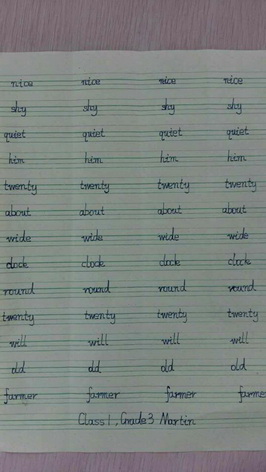 nice nice nice nice
shy shy shy shy
quiet quiet quiet quiet
him him him him
twenty twenty twenty twenty
about about about about
wide wide wide wide
clock clock clock clock
round round round round
twenty twenty twenty twenty
will will will will
old old old old
farmer farmer farmer farmer
Class 1, Grade 3 Martin